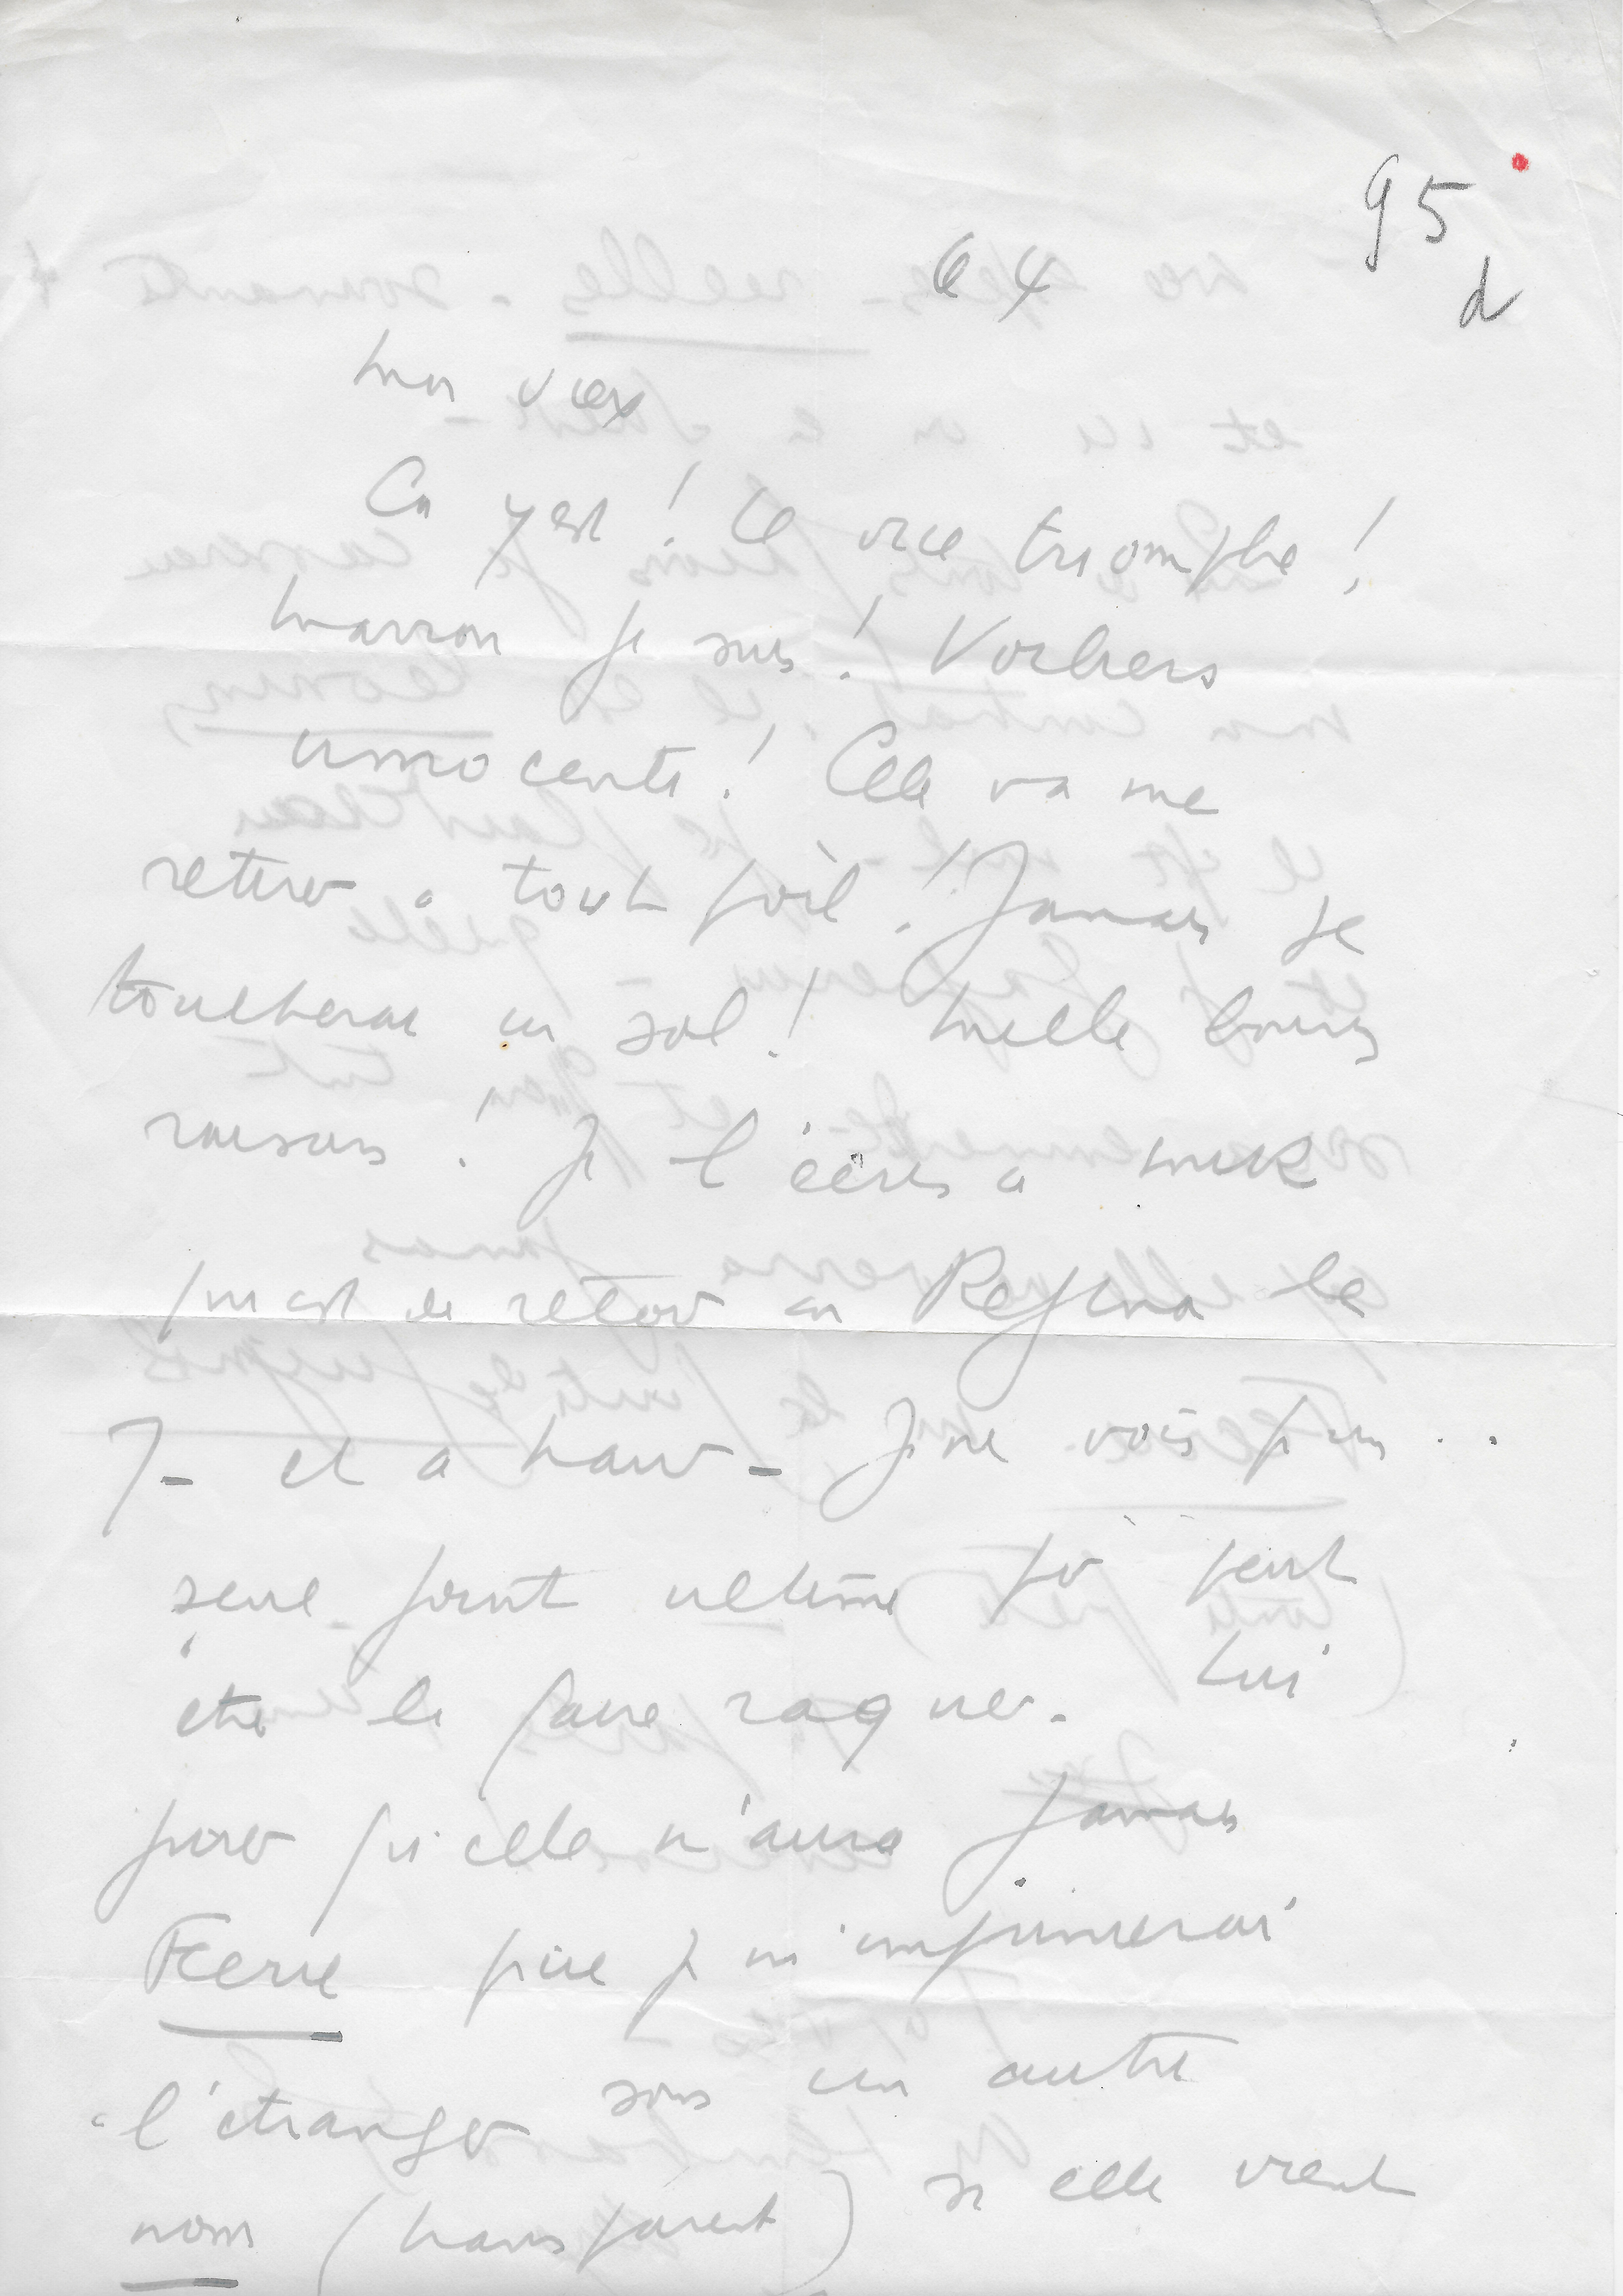 95
d
64
mon vieux
Ca y est ! le vice triomphe !
marron je suis ! Voilier
innocente ! Elle va me
retirer à tout poil ! Jamais je
toucherai un sol ! mille bonnes
raisons ! Je l'écris a mik
qui est de retour au Regina le
7 - et a haur - Je ne vois plus ..
seul point ultime pr peut
être la faire raquer. Lui
jurer qu'elle n'aura jamais
Feerie que je m'imprimerai
à l'étranger sous un autre
nom (transparent) si elle vient